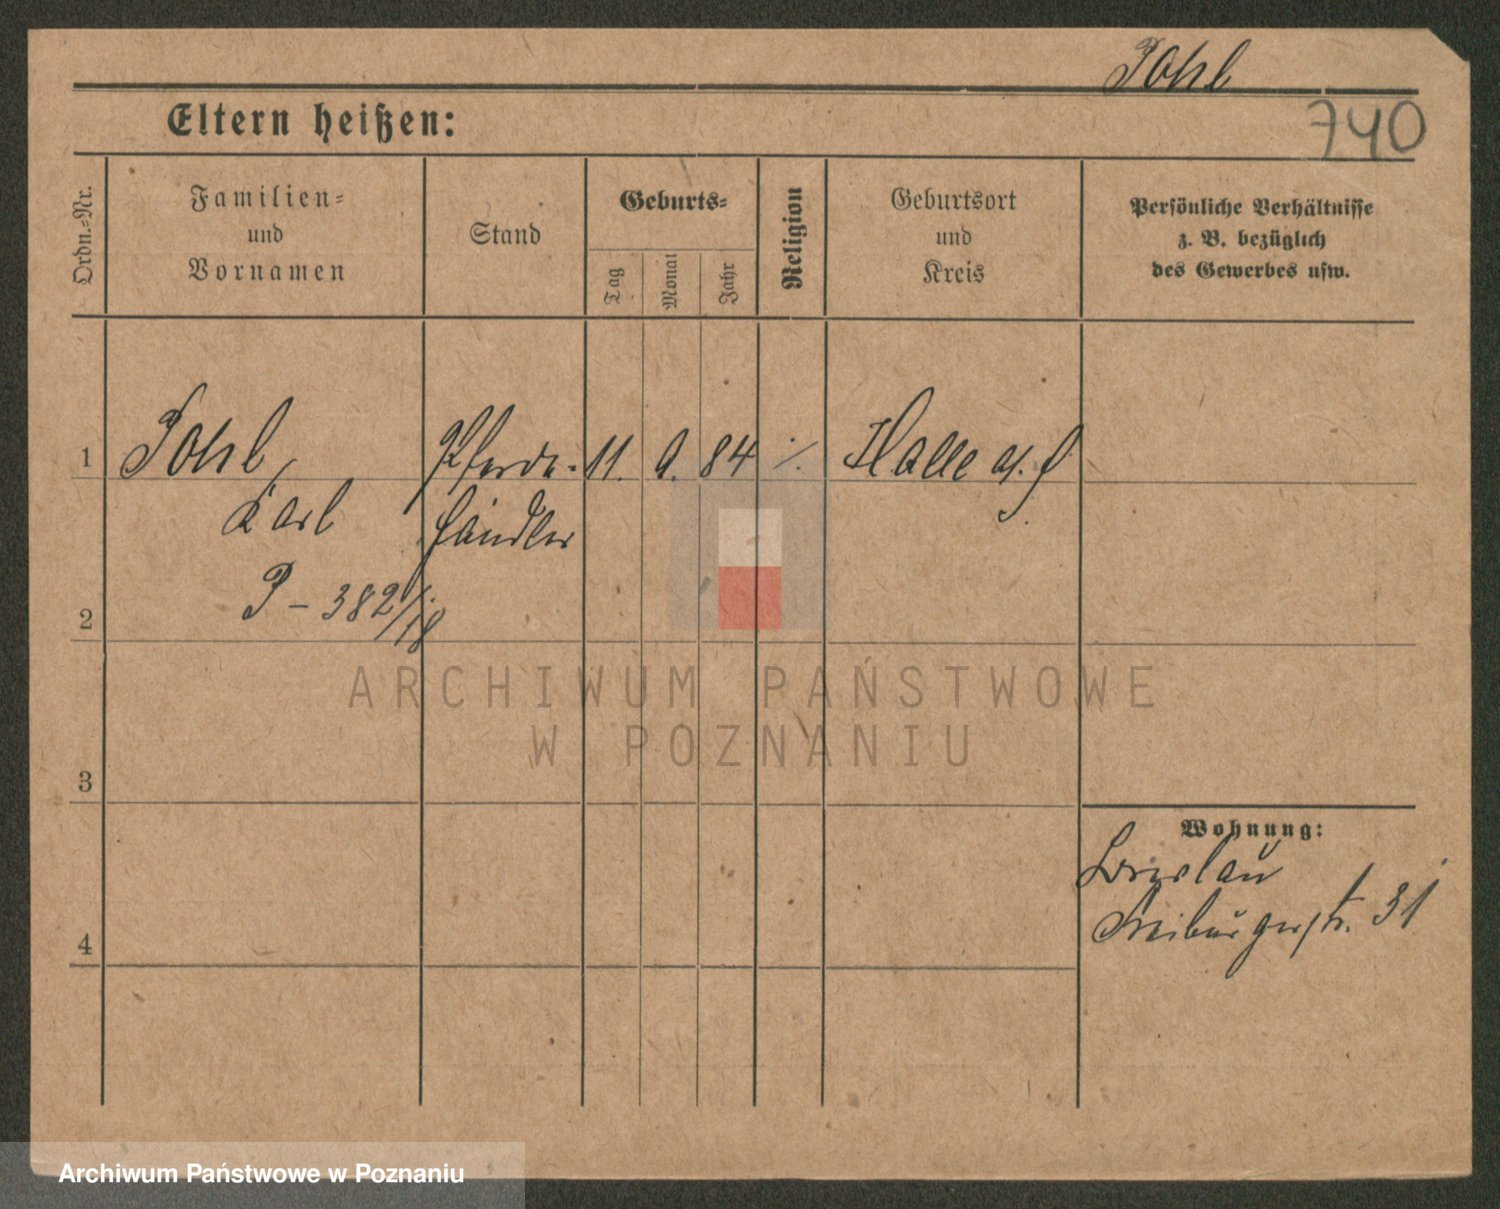 Pohl
740
Eltern heißen:
Ordn.-Nr.
Familien-
und
Vornamen
Stand
Geburts-
Tag
Monat
Jahr
Religion
Geburtsort
und
Kreis
Persönliche Verhältnisse
z. B. bezüglich
des Gewerbes usw.
1 Pohl, Pferde- 11. 9. 84 ·/. Halle a/. S.
Karl händler
2 P - 382/18
ARCHIWUM PAŃSTWOWE
W POZNANIU
3
Wohnung:
Breslau
4 Freiburgerstr. 31
Archiwum Państwowe w Poznaniu